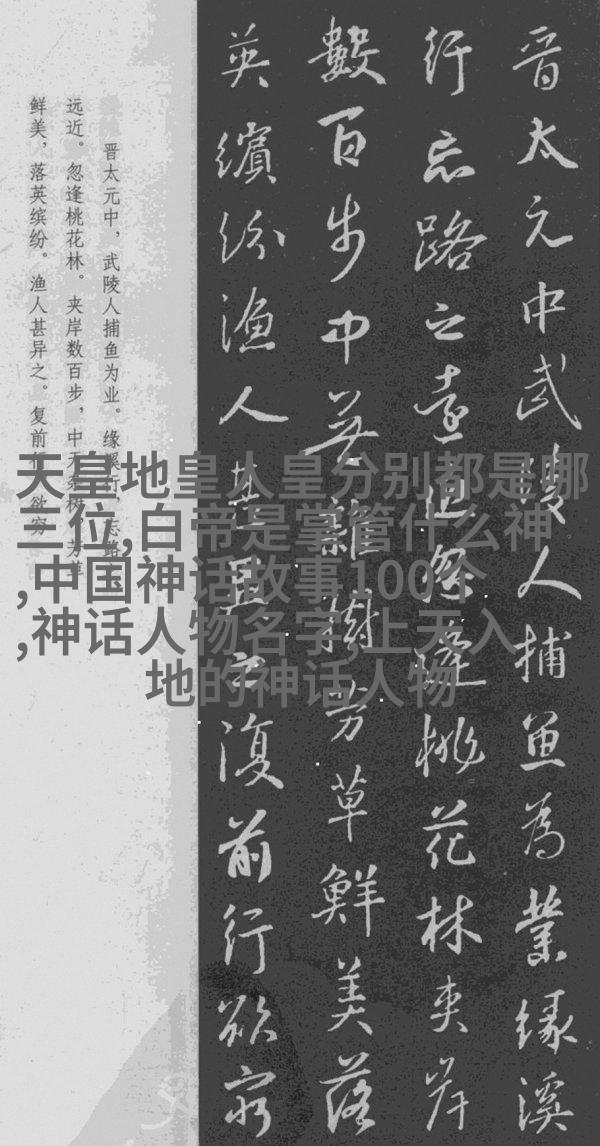 晋太元中武陵人捕魚為業緣溪
行忘路之遠近忽逢桃花林夾岸
數百步中無雜樹芳草鮮美落
英繽紛漁人甚異之復前行欲窮
晋太元中，武陵人捕鱼为业。缘溪行，忘路之
远近。忽逢桃花林。夹岸数百步，中无杂树，芳草
鲜美，落英缤纷。渔人甚异之。复前行，欲穷
天皇地皇人皇分别都是哪
三位,白帝是掌管什么神
,中国神话故事100个
,神话人物名字,上天入
地的神话人物